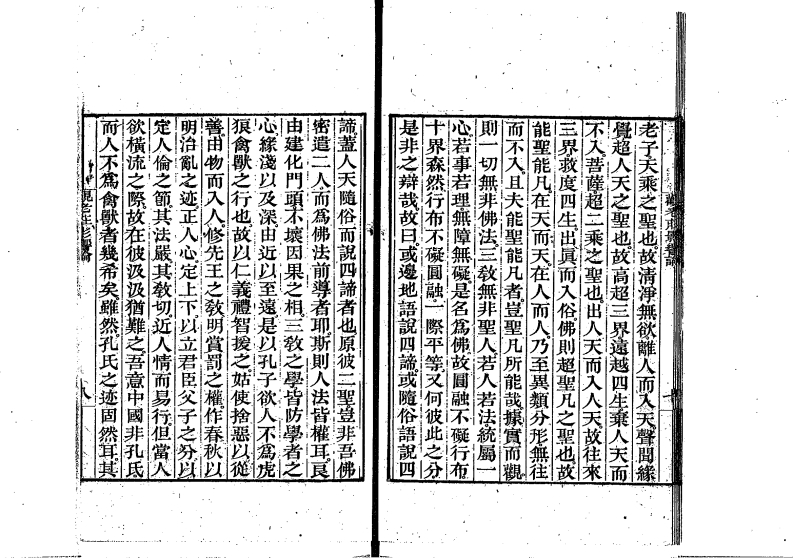 老子天乘之聖也。故清淨無欲離人而入天聲聞緣
覺超人天之聖也。故高超三界遠越四生棄人天而
不入。菩薩超二乘之聖也。出人天而入人天。故往來
三界救度四生。出眞而入俗佛則超聖凡之聖也。故
能聖能凡在天而天。在人而人。乃至異類分形無往
而不入。且夫能聖能凡者。豈聖凡所能哉。據實而觀
則一切無非佛法。三敎無非聖人。若人若法統屬一
心。若事若理無障無礙是名爲佛故圓融不礙行布
十界森然行布不礙圓融一際平等。又何彼此之分
是非之辯哉。故曰。或邊地語說四諦。或隨俗語說四
諦蓋人天隨俗而說四諦者也。原彼二聖豈非吾佛
密遣二人而爲佛法前導者耶。斯則人法皆權耳。良
由建化門頭不壞因果之相。三敎之學皆防學者之
心。緣淺以及深由近以至遠。是以孔子欲人不爲虎
狼禽獸之行也。故以仁義禮智援之。姑使捨惡以從
善。由物而入人。修先王之敎明賞罰之權作春秋以
明治亂之迹正人心定上下以立君臣父子之分以
定人倫之節。其法嚴。其敎切。近人情而易行。但當人
欲橫流之際。故在彼汲汲猶難之。吾意中國非孔氏
而人不爲禽獸者幾希矣。雖然。孔氏之迹固然耳。其